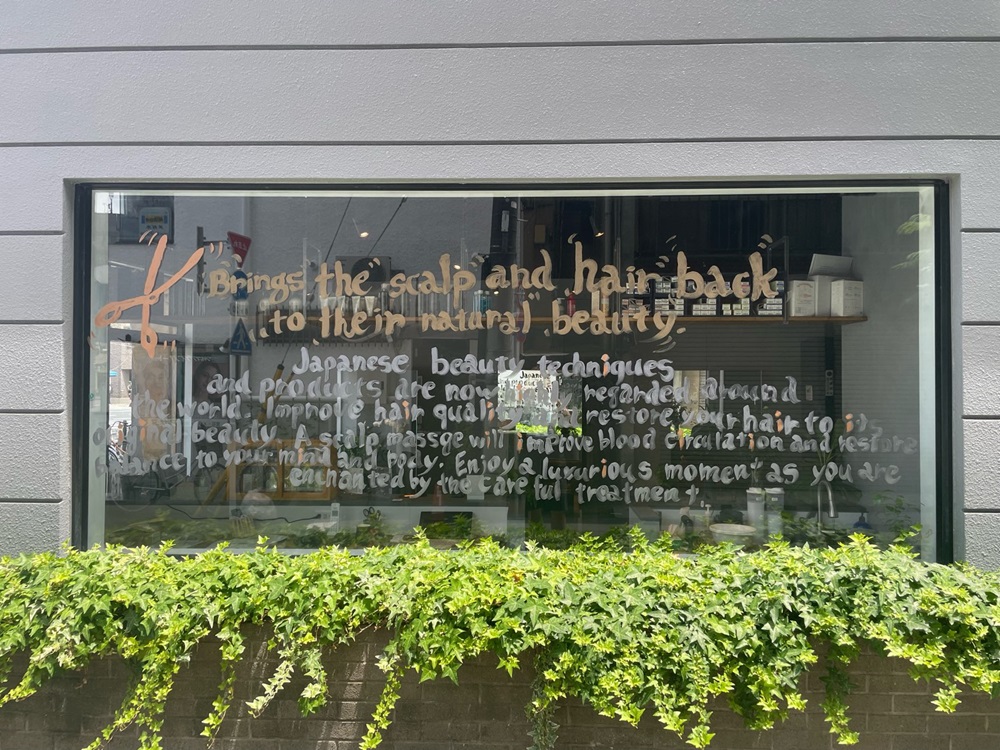 "Brings the" scalp" and "hair" back"
to "their natural" beauty.
Japanese beauty techniques
and products are now regarded around
the world. Improve hair quality restore your hair to it's
original beauty. A scalp massge will improve blood circulation and restore
balance to your mind and body. Enjoy a luxurious moment as you are
enchanted by the careful treatment.